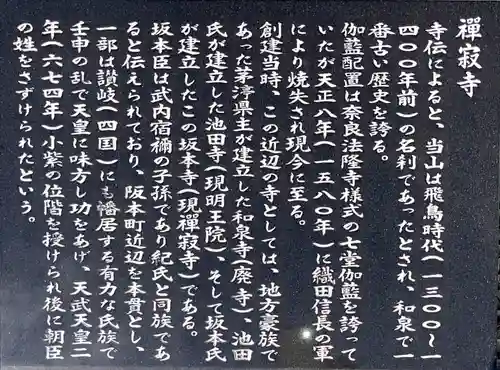 禪寂寺
寺伝によると、当山は飛鳥時代(一三〇〇～一
四〇〇年前)の名刹であったとされ、和泉で一
番古い歴史を誇る。
伽藍配置は奈良法隆寺様式の七堂伽藍を誇って
いたが天正八年(一五八〇年)に織田信長の軍
により焼失され現今に至る。
創建当時、この近辺の寺としては、地方豪族で
あった茅渟県主が建立した和泉寺(廃寺)、池田
氏が建立した池田寺(現明王院)、そして坂本氏
が建立したこの坂本寺(現禪寂寺)である。
坂本臣は武内宿禰の子孫であり紀氏と同族であ
ると伝えられており、阪本町近辺を本貫とし、
一部は讃岐(四国)にも幡居する有力な氏族で
壬申の乱で天皇に味方し功をあげ、天武天皇二
年(六七四年)小紫の位階を授けられ後に朝臣
の姓をさずけられたという。